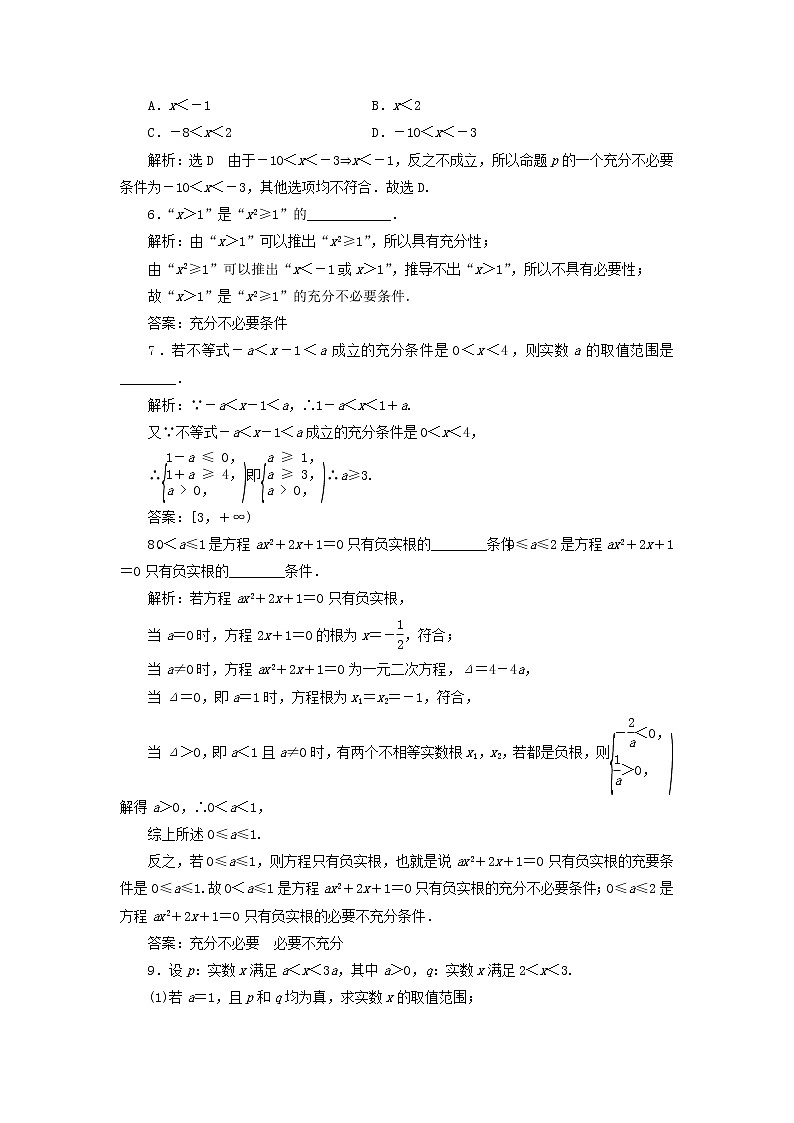 A．x＜－1　　　　　　　　　B．x＜2
C．－8＜x＜2　　　　　　　D．－10＜x＜－3
解析：选D　由于－10＜x＜－3⇒x＜－1，反之不成立，所以命题p的一个充分不必要
条件为－10＜x＜－3，其他选项均不符合．故选D.
6．“x＞1”是“x²≥1”的____________．
解析：由“x＞1”可以推出“x²≥1”，所以具有充分性；
由“x²≥1”可以推出“x＜－1或x＞1”，推导不出“x＞1”，所以不具有必要性；
故“x＞1”是“x²≥1”的充分不必要条件．
答案：充分不必要条件
7．若不等式－a＜x－1＜a成立的充分条件是0＜x＜4，则实数a的取值范围是
________．
解析：∵－a＜x－1＜a，∴1－a＜x＜1＋a.
又∵不等式－a＜x－1＜a成立的充分条件是0＜x＜4，
∴{1－a ≤ 0，1＋a ≥ 4，a > 0，即{a ≥ 1，a ≥ 3，a > 0，∴a≥3.
答案：[3，＋∞)
80＜a≤1是方程ax²＋2x＋1＝0只有负实根的________条件0≤a≤2是方程ax²＋2x＋1
＝0只有负实根的________条件．
解析：若方程ax²＋2x＋1＝0只有负实根，
当a＝0时，方程2x＋1＝0的根为x＝－1/2，符合；
当a≠0时，方程ax²＋2x＋1＝0为一元二次方程，Δ＝4－4a，
当Δ＝0，即a＝1时，方程根为x₁＝x₂＝－1，符合，
当Δ＞0，即a＜1且a≠0时，有两个不相等实数根x₁，x₂，若都是负根，则{－2/a＜0，1/a＞0，
解得a＞0，∴0＜a＜1，
综上所述0≤a≤1.
反之，若0≤a≤1，则方程只有负实根，也就是说ax²＋2x＋1＝0只有负实根的充要条
件是0≤a≤1.故0＜a≤1是方程ax²＋2x＋1＝0只有负实根的充分不必要条件；0≤a≤2是
方程ax²＋2x＋1＝0只有负实根的必要不充分条件．
答案：充分不必要　必要不充分
9．设p：实数x满足a＜x＜3a，其中a＞0，q：实数x满足2＜x＜3.
(1)若a＝1，且p和q均为真，求实数x的取值范围；